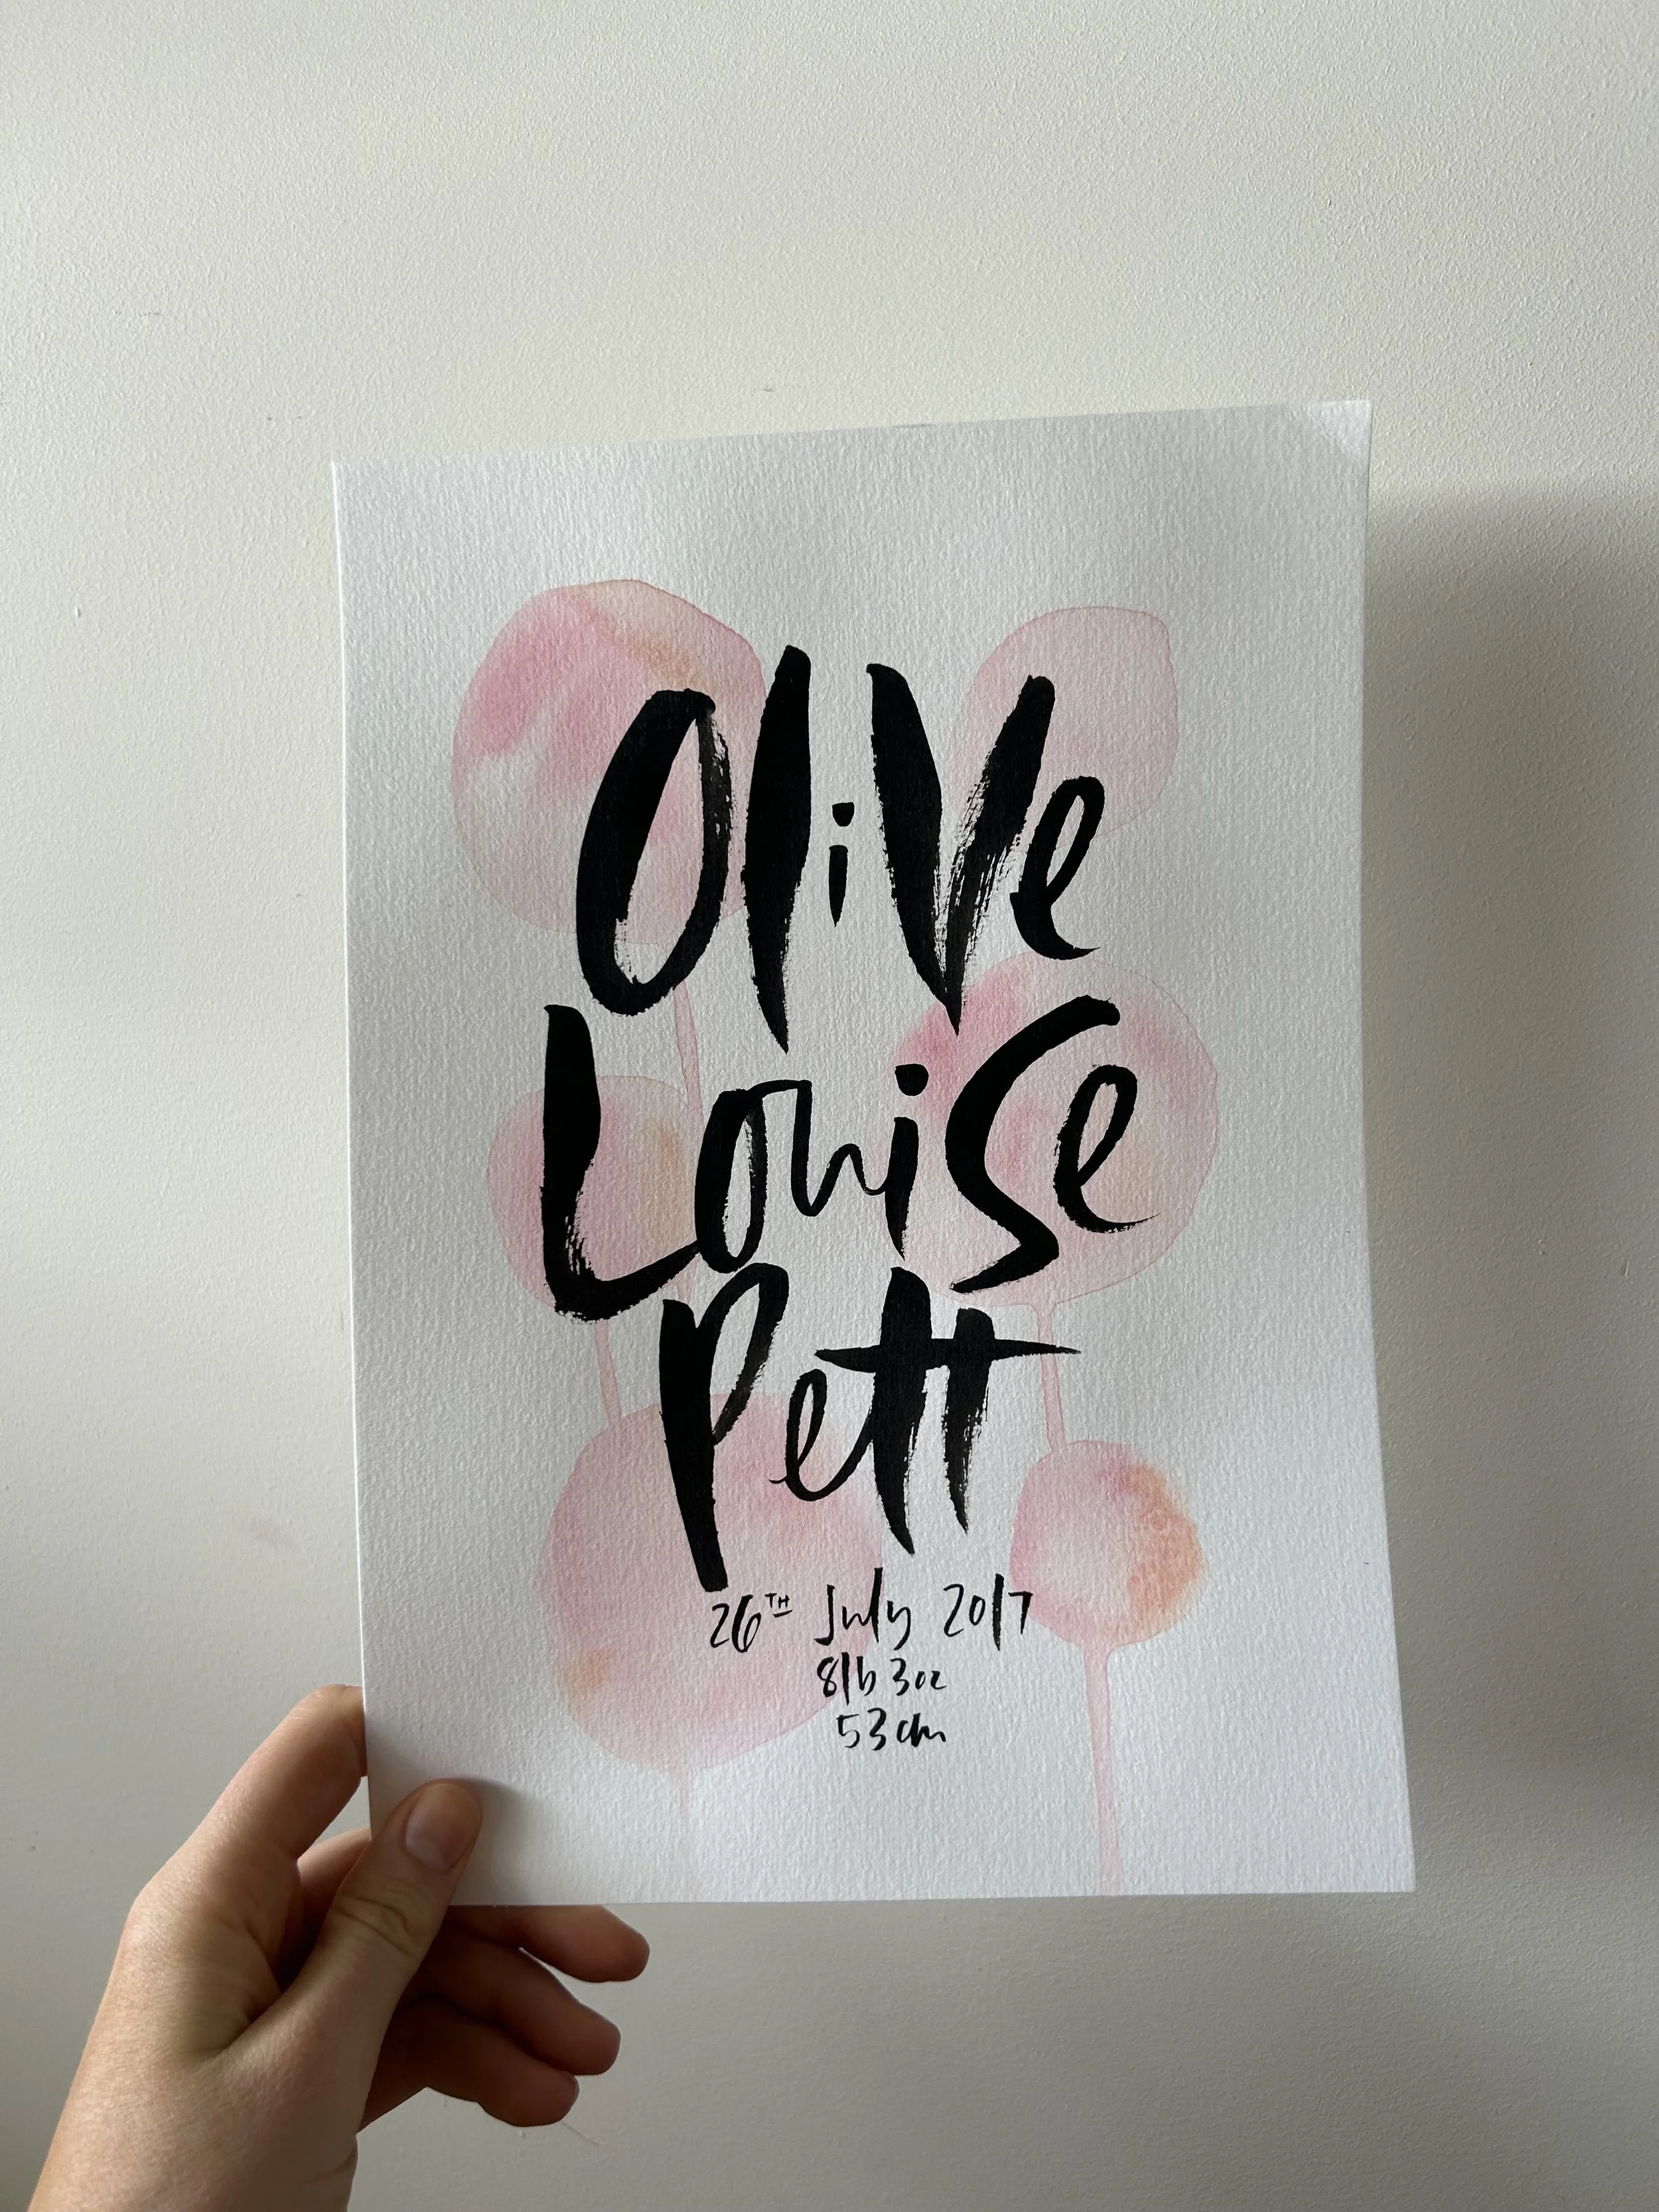 Olive
Louise
Pett
26TH July 2017
8lb 3oz
53cm